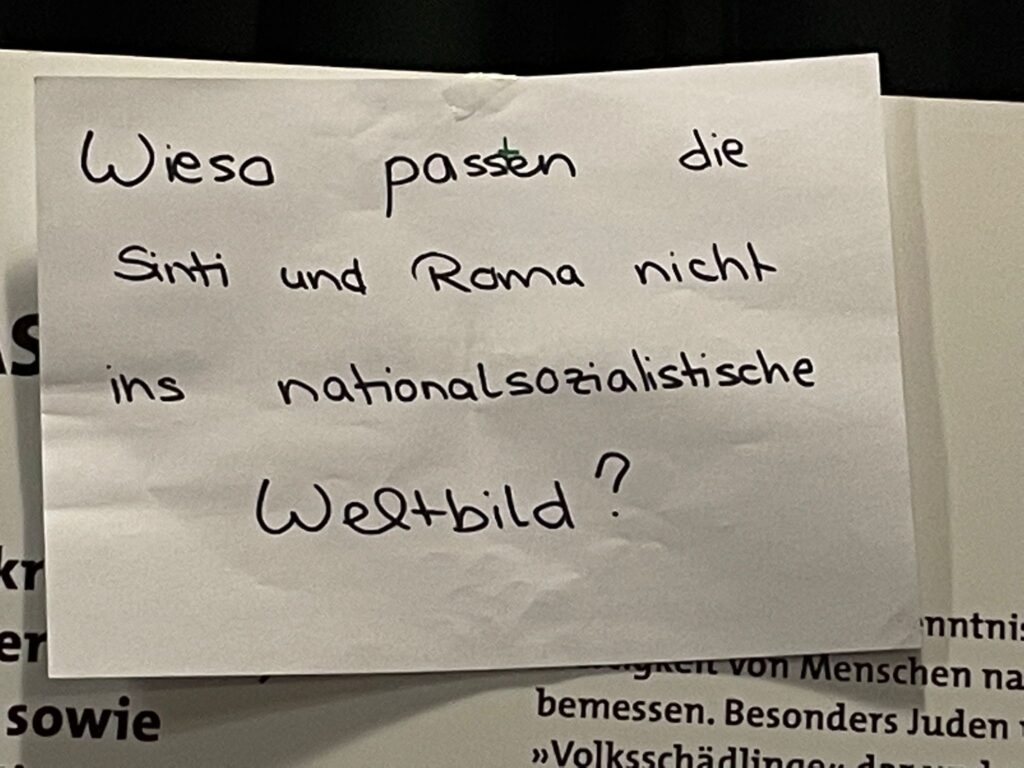 Wieso passten die
Sinti und Roma nicht
ins nationalsozialistische
Weltbild?
sowie
von Menschen
bemessen. Besonders Juden
»Volksschädlinge«